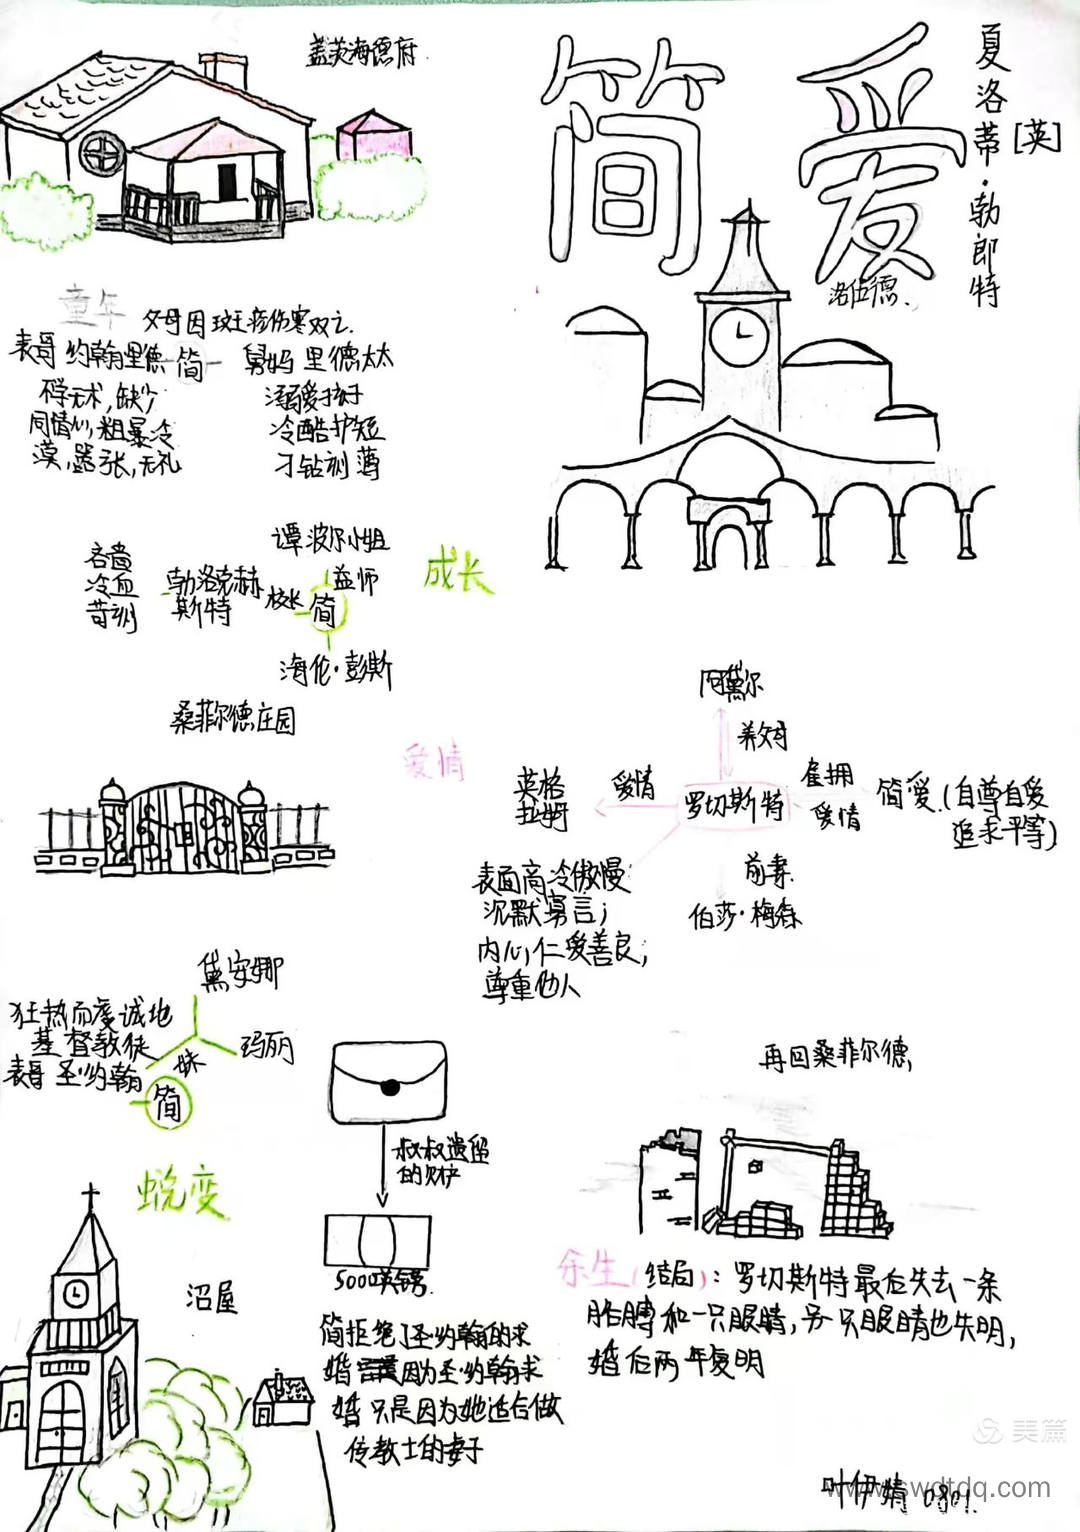 盖茨海德府
简爱
[英]
夏洛蒂·勃郎特
洛伍德
童年
父母因斑疹伤寒双亡
表哥 约翰里德
不学无术,缺少
同情心,粗暴冷
漠,嚣张,无礼
简
舅妈 里德太太
溺爱孩子
冷酷护短
刁钻刻薄
谭波尔小姐
益师
吝啬
冷血
苛刻
勃洛克赫
斯特
校长
简
成长
海伦·彭斯
桑菲尔德庄园
爱情
阿黛尔
养父母
英格
拉姆
爱情
罗切斯特
雇拥
爱情
简爱.(自尊自爱
追求平等)
表面高冷傲慢
沉默寡言;
内心,仁爱善良,
尊重他人
前妻
伯莎·梅森
黛安娜
狂热而虔诚地
基督教徒
表哥 圣·约翰
妹
玛丽
简
蜕变
叔叔遗留
的财产
5000英镑
沼屋
简拒绝了圣·约翰的求
婚
因为圣·约翰求
婚 只是因为她适合做
传教士的妻子
再回桑菲尔德,
余生(结局):罗切斯特最后失去一条
胳膊和一只眼睛,另一只眼睛也失明,
婚后两年复明
美篇
叶伊婧 0801
www.swdtdq.com